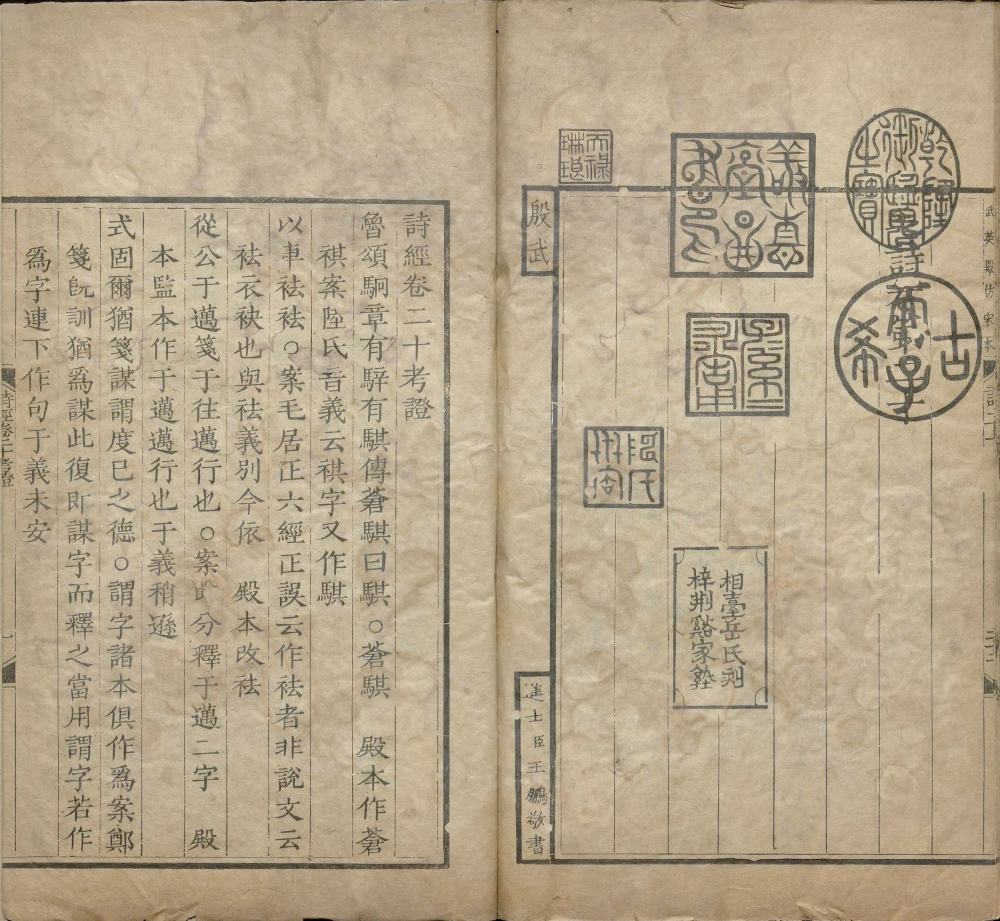 武英殿仿宋本
乾隆御覽之寶
古希天子
天祿琳琅
相臺岳氏刻
梓荆谿家塾
殷武
進士臣王鵬敬書
詩經卷二十考證
魯頌駉章有騂有騏傳蒼騏曰騏○蒼騏　殿本作蒼
祺案陸氏音義云祺字又作騏
以車祛祛○案毛居正六經正誤云作袪者非說文云
袪衣袂也與祛義別今依　殿本改祛
從公于邁箋于往邁行也○案此分釋于邁二字　殿
本監本作于邁邁行也于義稍遜
式固爾猶箋謀謂度已之德○謂字諸本俱作爲案鄭
箋旣訓猶爲謀此復即謀字而釋之當用謂字若作
爲字連下作句于義未安
詩經卷二十考證
一